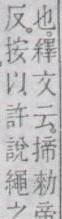 也。釋文云。揥勑帝
反。按以許說繩之